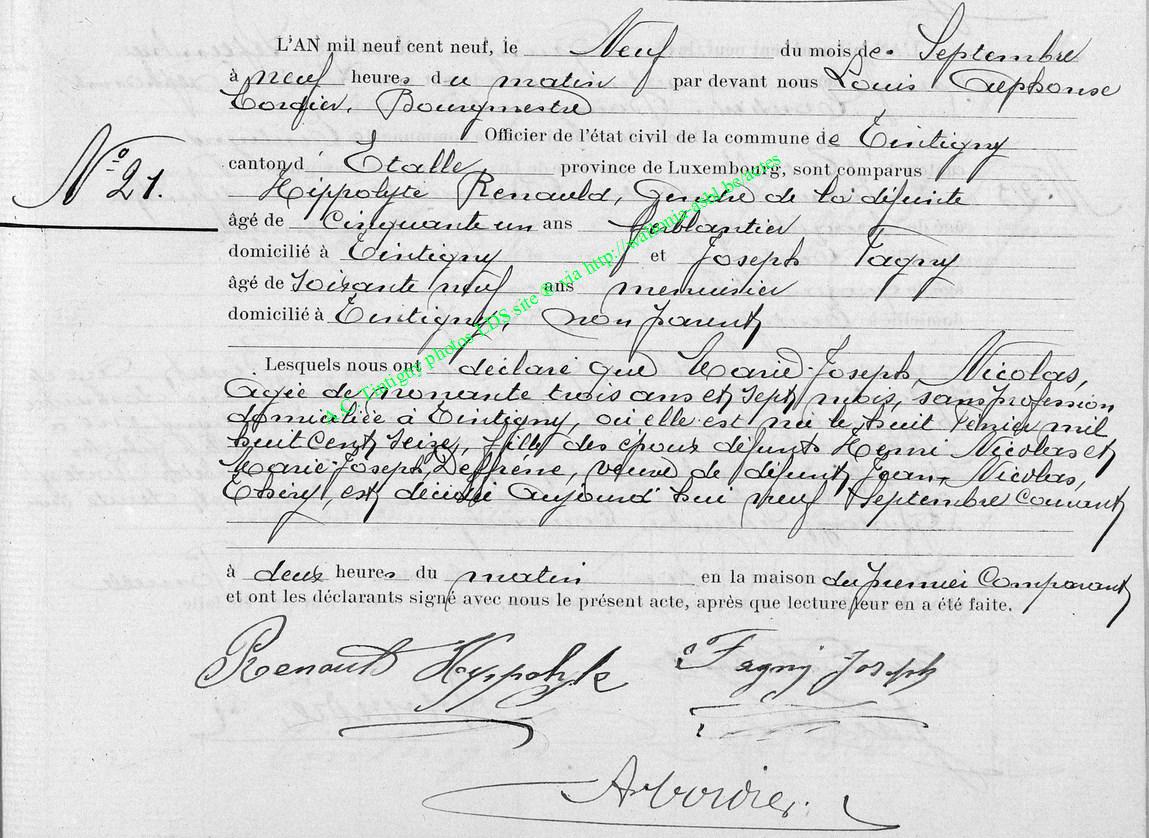 L'AN mil neuf cent neuf, le Neuf du mois de Septembre
à neuf heures du matin par devant nous Louis Alphonse
Cordier, Bourgmestre
Officier de l'état civil de la commune de Tintigny
N° 21.
canton d' Etalle province de Luxembourg, sont comparus
Hippolyte Renauld, Gendre de la défunte
âgé de Cinquante un ans ferblantier
domicilié à Tintigny et Joseph Fagny
âgé de Soixante neuf ans menuisier
domicilié à Tintigny, non parent
Lesquels nous ont déclaré que Marie-Joseph, Nicolas,
agée de nonante trois ans et sept mois, sans profession
domiciliée à Tintigny, où elle est née le huit Février mil
huit cent seize, fille des époux défunts Henri Nicolas et
Marie-Joseph, veuve de défunt Jean, Nicolas,
Thiéry, est décédée aujourd'hui neuf Septembre Courant
à deux heures du matin en la maison du premier Comparant
et ont les déclarants signé avec nous le présent acte, après que lecture leur en a été faite.
Renauld Hyppolyte Fagny Joseph
A Cordier
A.C. Tintigny photos LDS site © via http://watsonia-asbl.be/actes